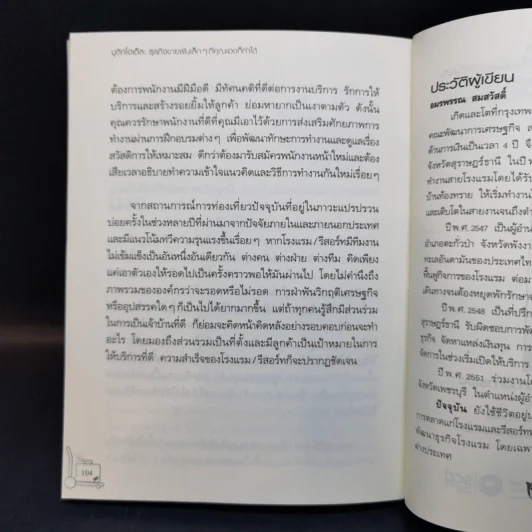 บูติกโฮเต็ล: ธุรกิจขายฝันเล็กๆ ที่คุณเองก็ทำได้
ต้องการพนักงานมีฝีมือดี มีทัศนคติที่ดีต่อการงานบริการ รักการให้
บริการและสร้างรอยยิ้มให้ลูกค้า ย่อมหายากเป็นเงาตามตัว ดังนั้น
คุณควรรักษาพนักงานที่ดีที่คุณมีเอาไว้ด้วยการส่งเสริมศักยภาพการ
ทำงานผ่านการฝึกอบรมต่างๆ เพื่อพัฒนาทักษะการทำงานและดูแลเรื่อง
สวัสดิการให้เหมาะสม ดีกว่าต้องมารับสมัครพนักงานหน้าใหม่และต้อง
เสียเวลาอธิบายทำความเข้าใจแนวคิดและวิธีการทำงานกันใหม่เรื่อยๆ
จากสถานการณ์การท่องเที่ยวปัจจุบันที่อยู่ในภาวะแปรปรวน
บ่อยครั้งในช่วงหลายปีที่ผ่านมาจากปัจจัยภายในและภายนอกประเทศ
และมีแนวโน้มทวีความรุนแรงขึ้นเรื่อยๆ หากโรงแรม/รีสอร์ทมีทีมงาน
ไม่เข้มแข็งเป็นอันหนึ่งอันเดียวกัน ต่างคน ต่างฝ่าย ต่างทีม คิดเพียง
แค่เอาตัวเองให้รอดไปเป็นครั้งคราวพอให้มันผ่านไป โดยไม่คำนึงถึง
ภาพรวมขององค์กรว่าจะรอดหรือไม่รอด การฝ่าฟันวิกฤติเศรษฐกิจ
หรืออุปสรรคใดๆ ก็เป็นไปได้ยากมากขึ้น แต่ถ้าทุกคนรู้สึกมีส่วนร่วม
ในการเป็นเจ้าบ้านที่ดี ก็ย่อมจะคิดหน้าคิดหลังอย่างรอบคอบก่อนจะทำ
อะไร โดยมองถึงส่วนรวมเป็นที่ตั้งและมีลูกค้าเป็นเป้าหมายในการ
ให้บริการที่ดี ความสำเร็จของโรงแรม/รีสอร์ทก็จะปรากฏชัดเจน
104
ประวัติผู้เขียน
อมรพรรณ สมสวัสดิ์
เกิดและโตที่กรุงเทพ
คณะพัฒนาการเศรษฐกิจ ส
ด้านการเงินเป็นเวลา 4 ปี จึ
จังหวัดสุราษฎร์ธานี ในปี พ
ทำงานสายโรงแรมโดยได้รับ
บ้านท้องทราย ให้เริ่มทำงาน
และเติบโตในสายงานจนถึงตำ
ปี พ.ศ. 2547 เป็นผู้อำน
อำเภอตะกั่วป่า จังหวัดพังงา
ทะเลอันดามันของประเทศไทย
ฟื้นฟูกิจการของโรงแรม ต่อมา
เดินทางจนต้องหยุดพักรักษาต
ปี พ.ศ. 2548 เป็นที่ปรึก
สุราษฎร์ธานี รับผิดชอบการพั
ธุรกิจ จัดหาแหล่งเงินทุน การ
จัดการในช่วงเริ่มเปิดให้บริการ
ปี พ.ศ. 2551 ร่วมงานโ
จังหวัดเพชรบุรี ในตำแหน่งผู้อำ
ปัจจุบัน ยังใช้ชีวิตอยู่บ
การตลาดแก่โรงแรมและรีสอร์ทข
พัฒนาธุรกิจโรงแรม โดยเฉพา
ต่างประเทศ